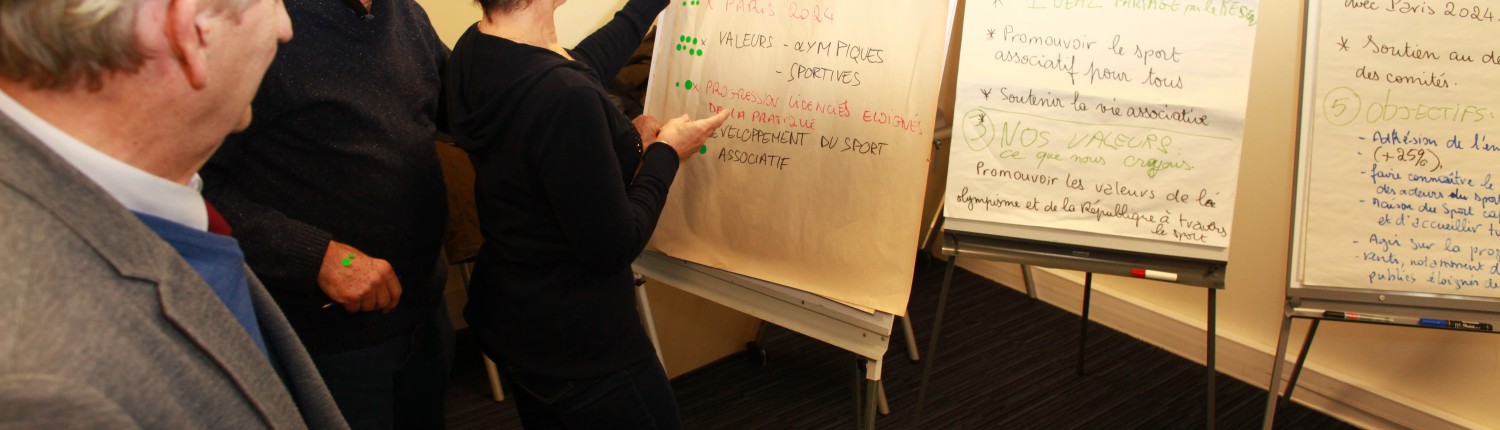 x PARIS 2024
x VALEURS - OLYMPIQUES
- SPORTIVES
x PROGRESSION LICENCIÉS ELOIGNÉS
DE LA PRATIQUE
DEVELOPPEMENT DU SPORT
ASSOCIATIF
* IDEAL PARTAGÉ par le
* Promouvoir le sport
associatif pour tous
* Soutenir la vie associative
③ NOS VALEURS :
ce que nous croyons.
Promouvoir les valeurs de
olympisme et de la République à travers
le sport
avec Paris 2024.
* Soutien au
des comités.
⑤ OBJECTIFS :
- Adhésion de
- (+25%),
- faire connaître le
des acteurs du
- Maison du Sport
et d'accueillir
- Agir sur la
notamment
publics éloignés